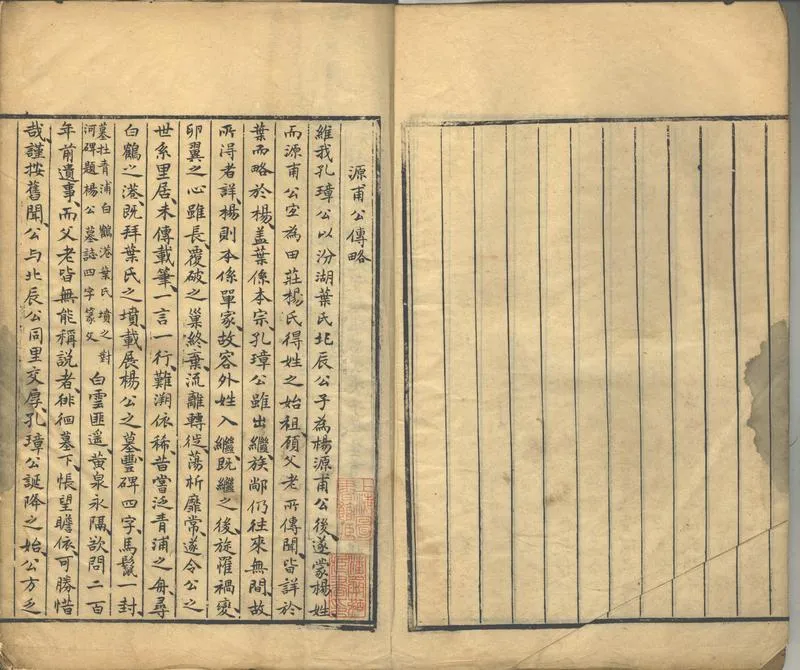 源甫公傳略
維我孔璋公以汾湖葉氏北辰公子為楊源甫公後遂蒙楊姓
而源甫公寔為田莊楊氏得姓之始祖顧父老所傳聞皆詳於
葉而略於楊蓋葉係本宗孔璋公雖出繼族鄰仍往來無間故
所得者詳楊則本係單家故容外姓入繼既繼之後旋罹禍變
卵翼之心雖長覆破之巢終棄流離轉徙蕩析靡常遂令公之
世系里居未傳載筆一言一行難溯依稀昔嘗泛青浦之舟尋
白鶴之港既拜葉氏之墳載展楊公之墓豐碑四字馬鬣一封
墓在青浦白鶴港葉氏墳之對
河碑題楊公墓誌四字篆文
白雲匪遥黄泉永隔欲問二百
年前遺事而父老皆無能稱說者徘徊墓下悵望瞻依可勝惜
哉謹按舊聞公与北辰公同里交厚孔璋公誕降之始公方乏